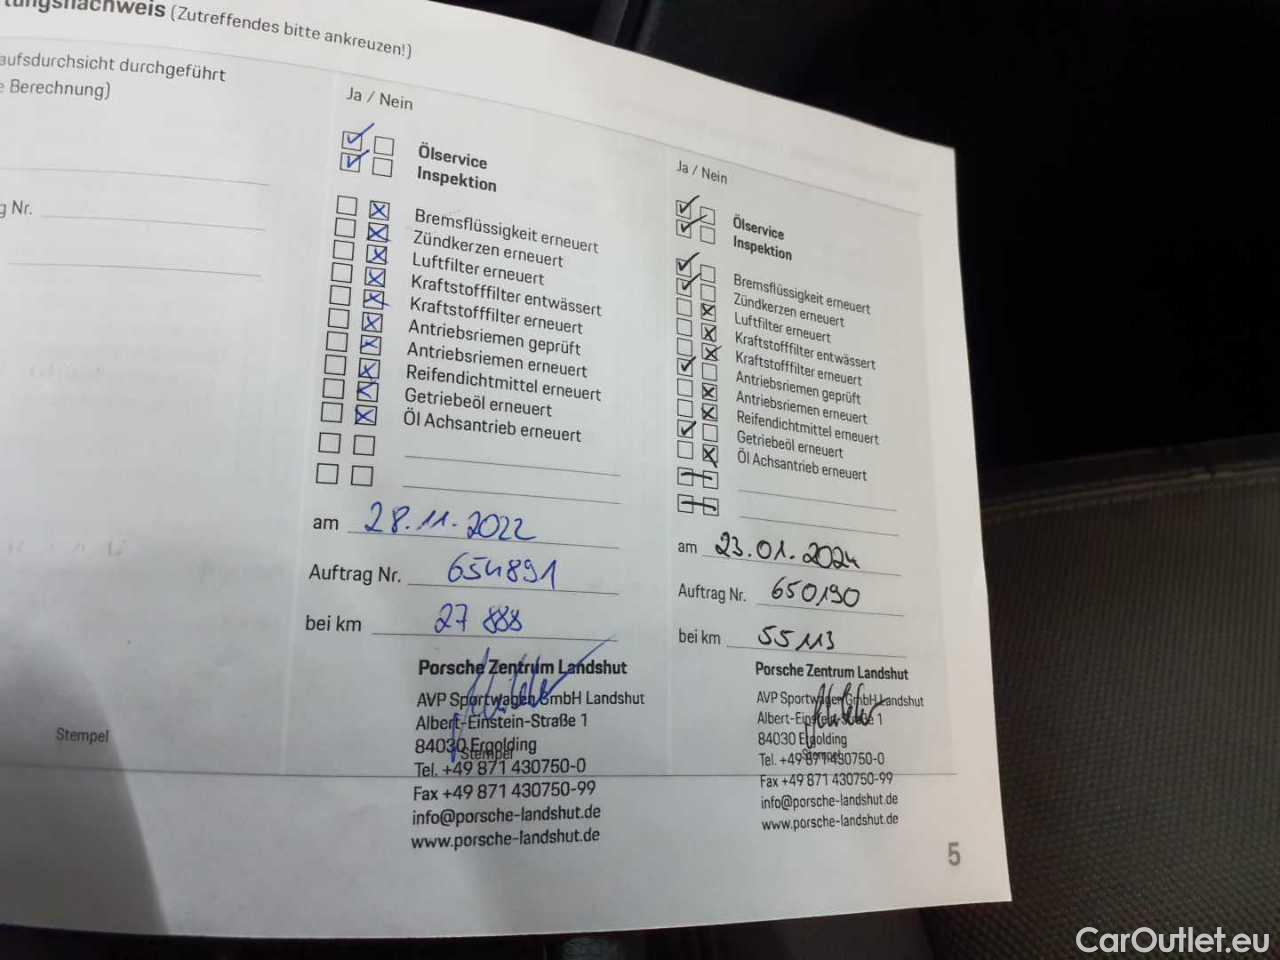 tungsnachweis (Zutreffendes bitte ankreuzen!)
aufsdurchsicht durchgeführt
e Berechnung)
g Nr.
Stempel
Ja / Nein
Ölservice
Inspektion
Bremsflüssigkeit erneuert
Zündkerzen erneuert
Luftfilter erneuert
Kraftstofffilter entwässert
Kraftstofffilter erneuert
Antriebsriemen geprüft
Antriebsriemen erneuert
Reifendichtmittel erneuert
Getriebeöl erneuert
Öl Achsantrieb erneuert
am 28.11.2022
Auftrag Nr. 654891
bei km 27 888
Porsche Zentrum Landshut
AVP Sportwagen GmbH Landshut
Albert-Einstein-Straße 1
84030 Ergolding
Stempel
Tel. +49 871 430750-0
Fax +49 871 430750-99
info@porsche-landshut.de
www.porsche-landshut.de
Ja / Nein
Ölservice
Inspektion
Bremsflüssigkeit erneuert
Zündkerzen erneuert
Luftfilter erneuert
Kraftstofffilter entwässert
Kraftstofffilter erneuert
Antriebsriemen geprüft
Antriebsriemen erneuert
Reifendichtmittel erneuert
Getriebeöl erneuert
Öl Achsantrieb erneuert
am 23.01.2024
Auftrag Nr. 650190
bei km 55 113
Porsche Zentrum Landshut
AVP Sportwagen GmbH Landshut
Albert-Einstein-Straße 1
84030 Ergolding
Stempel
Tel. +49 871 430750-0
Fax +49 871 430750-99
info@porsche-landshut.de
www.porsche-landshut.de
5
CarOutlet.eu